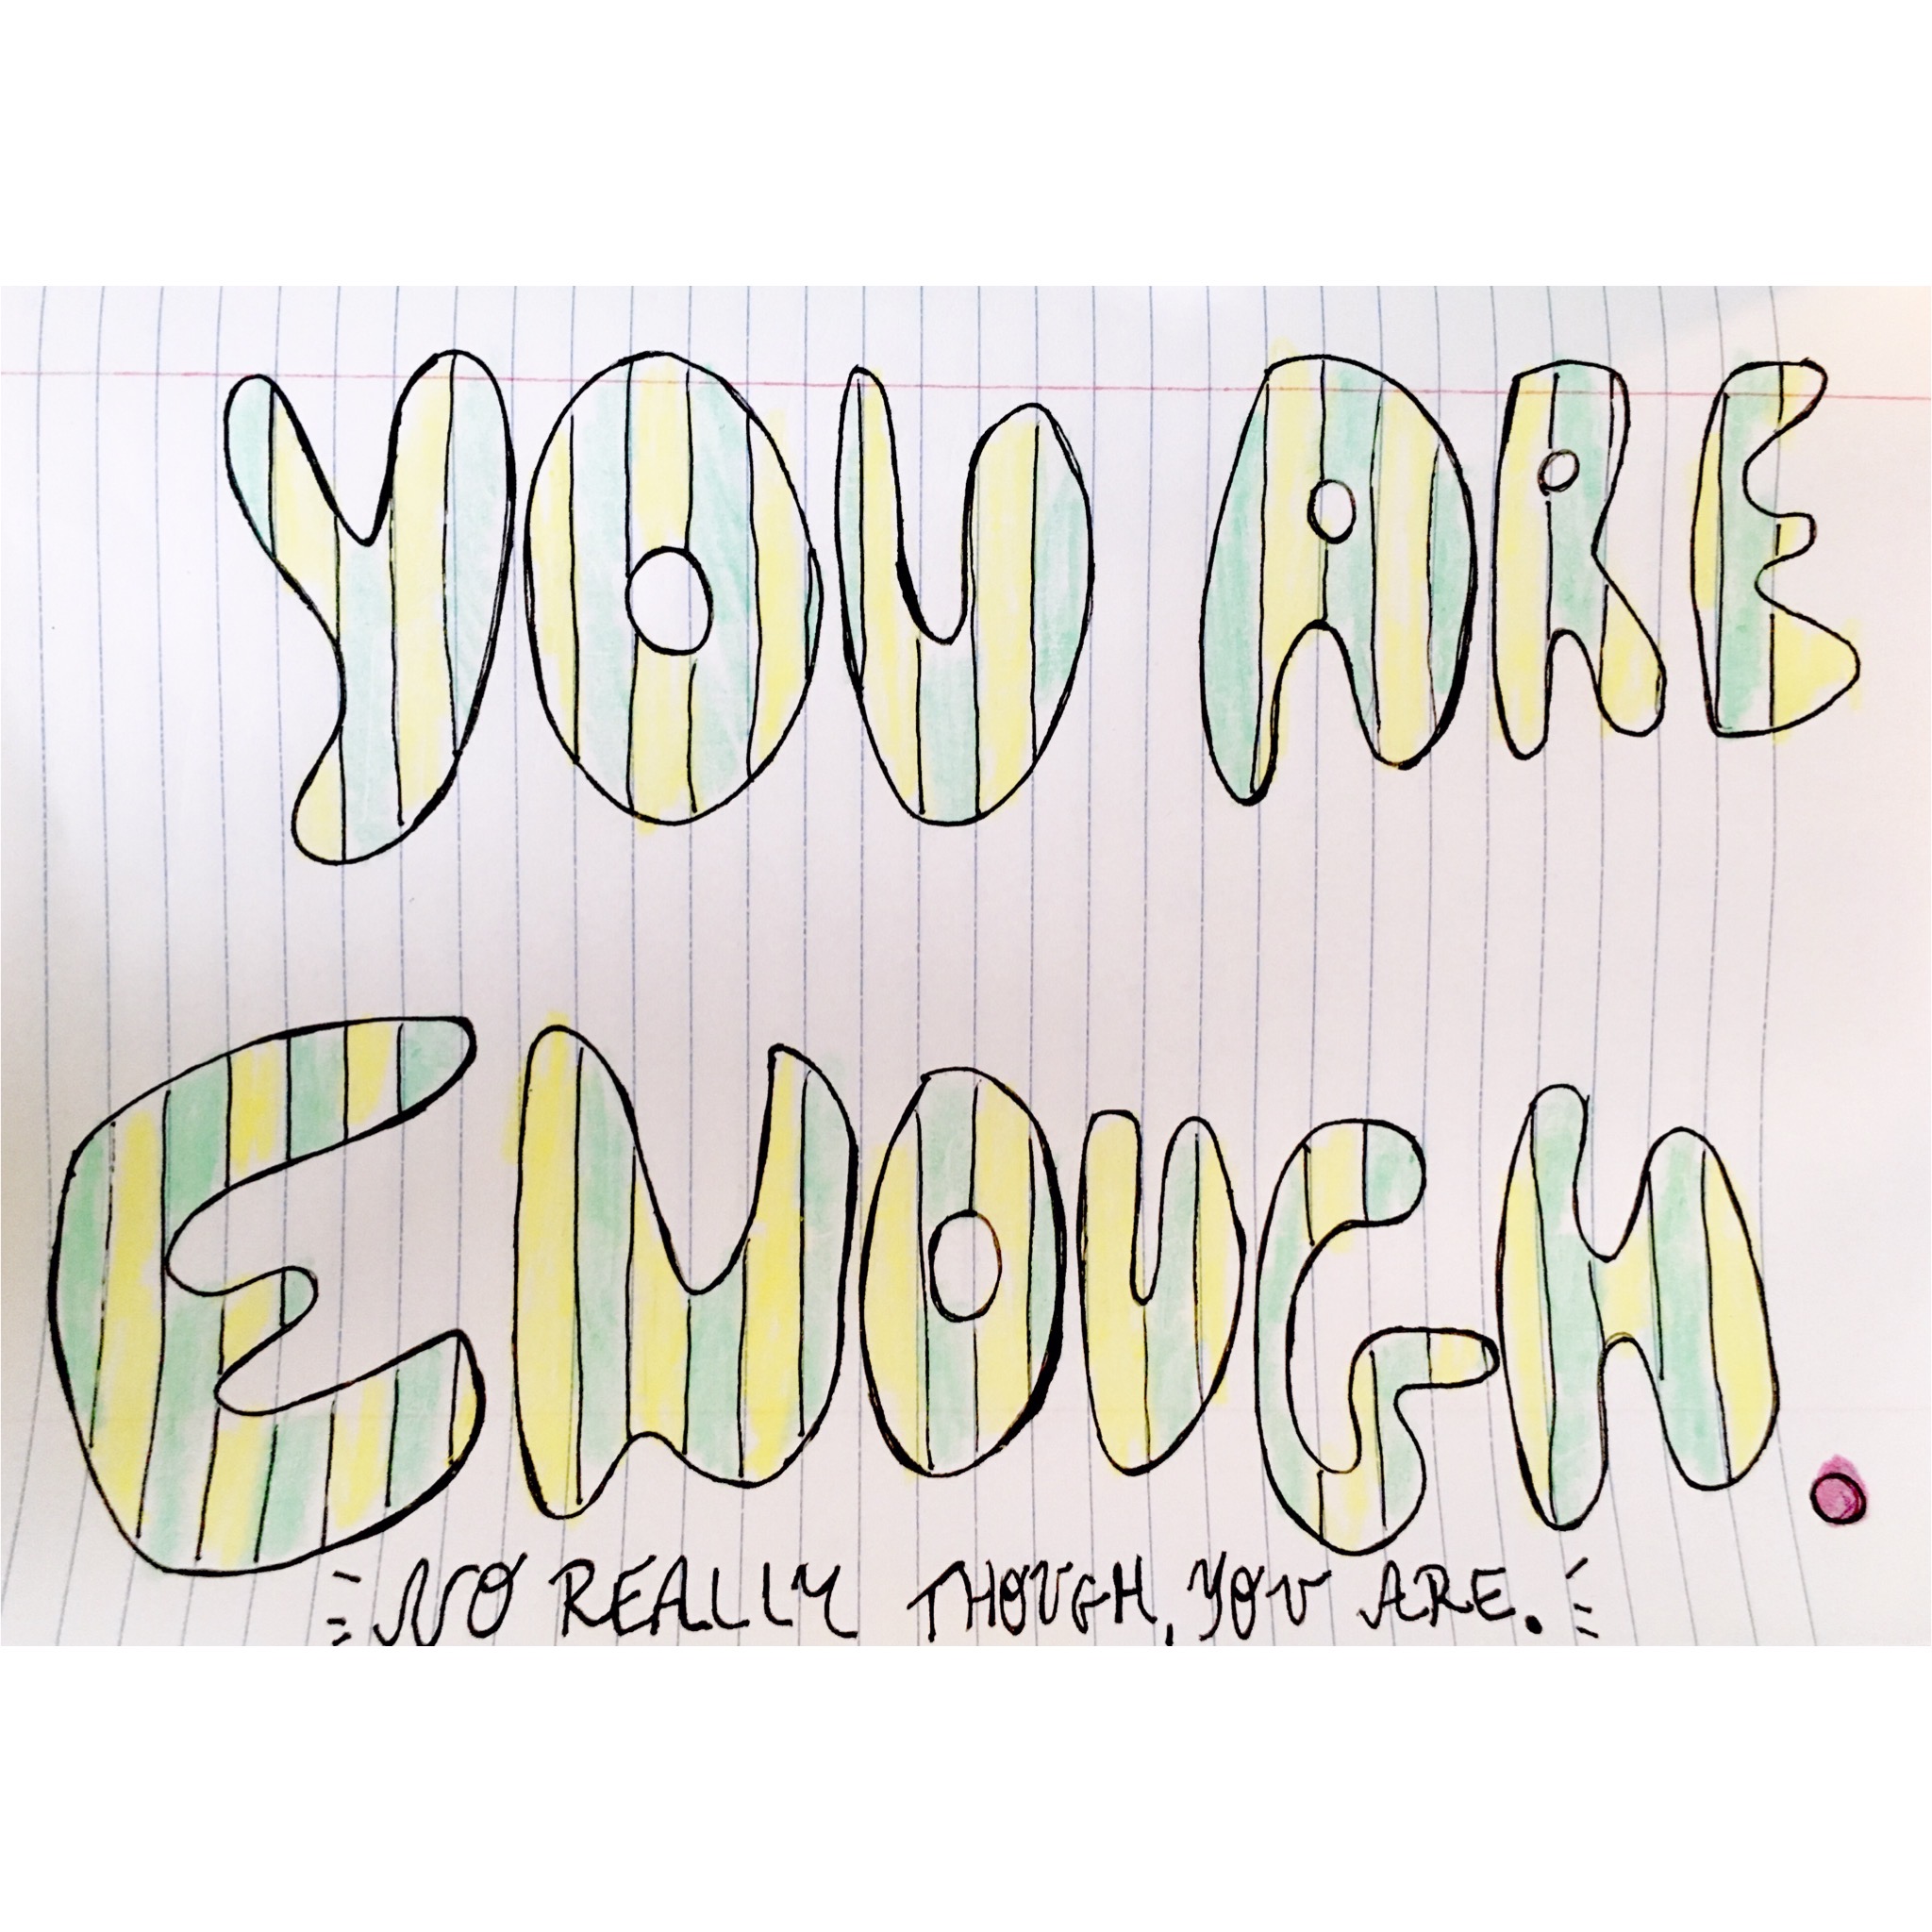 YOU ARE
ENOUGH.
NO REALLY THOUGH, YOU ARE.